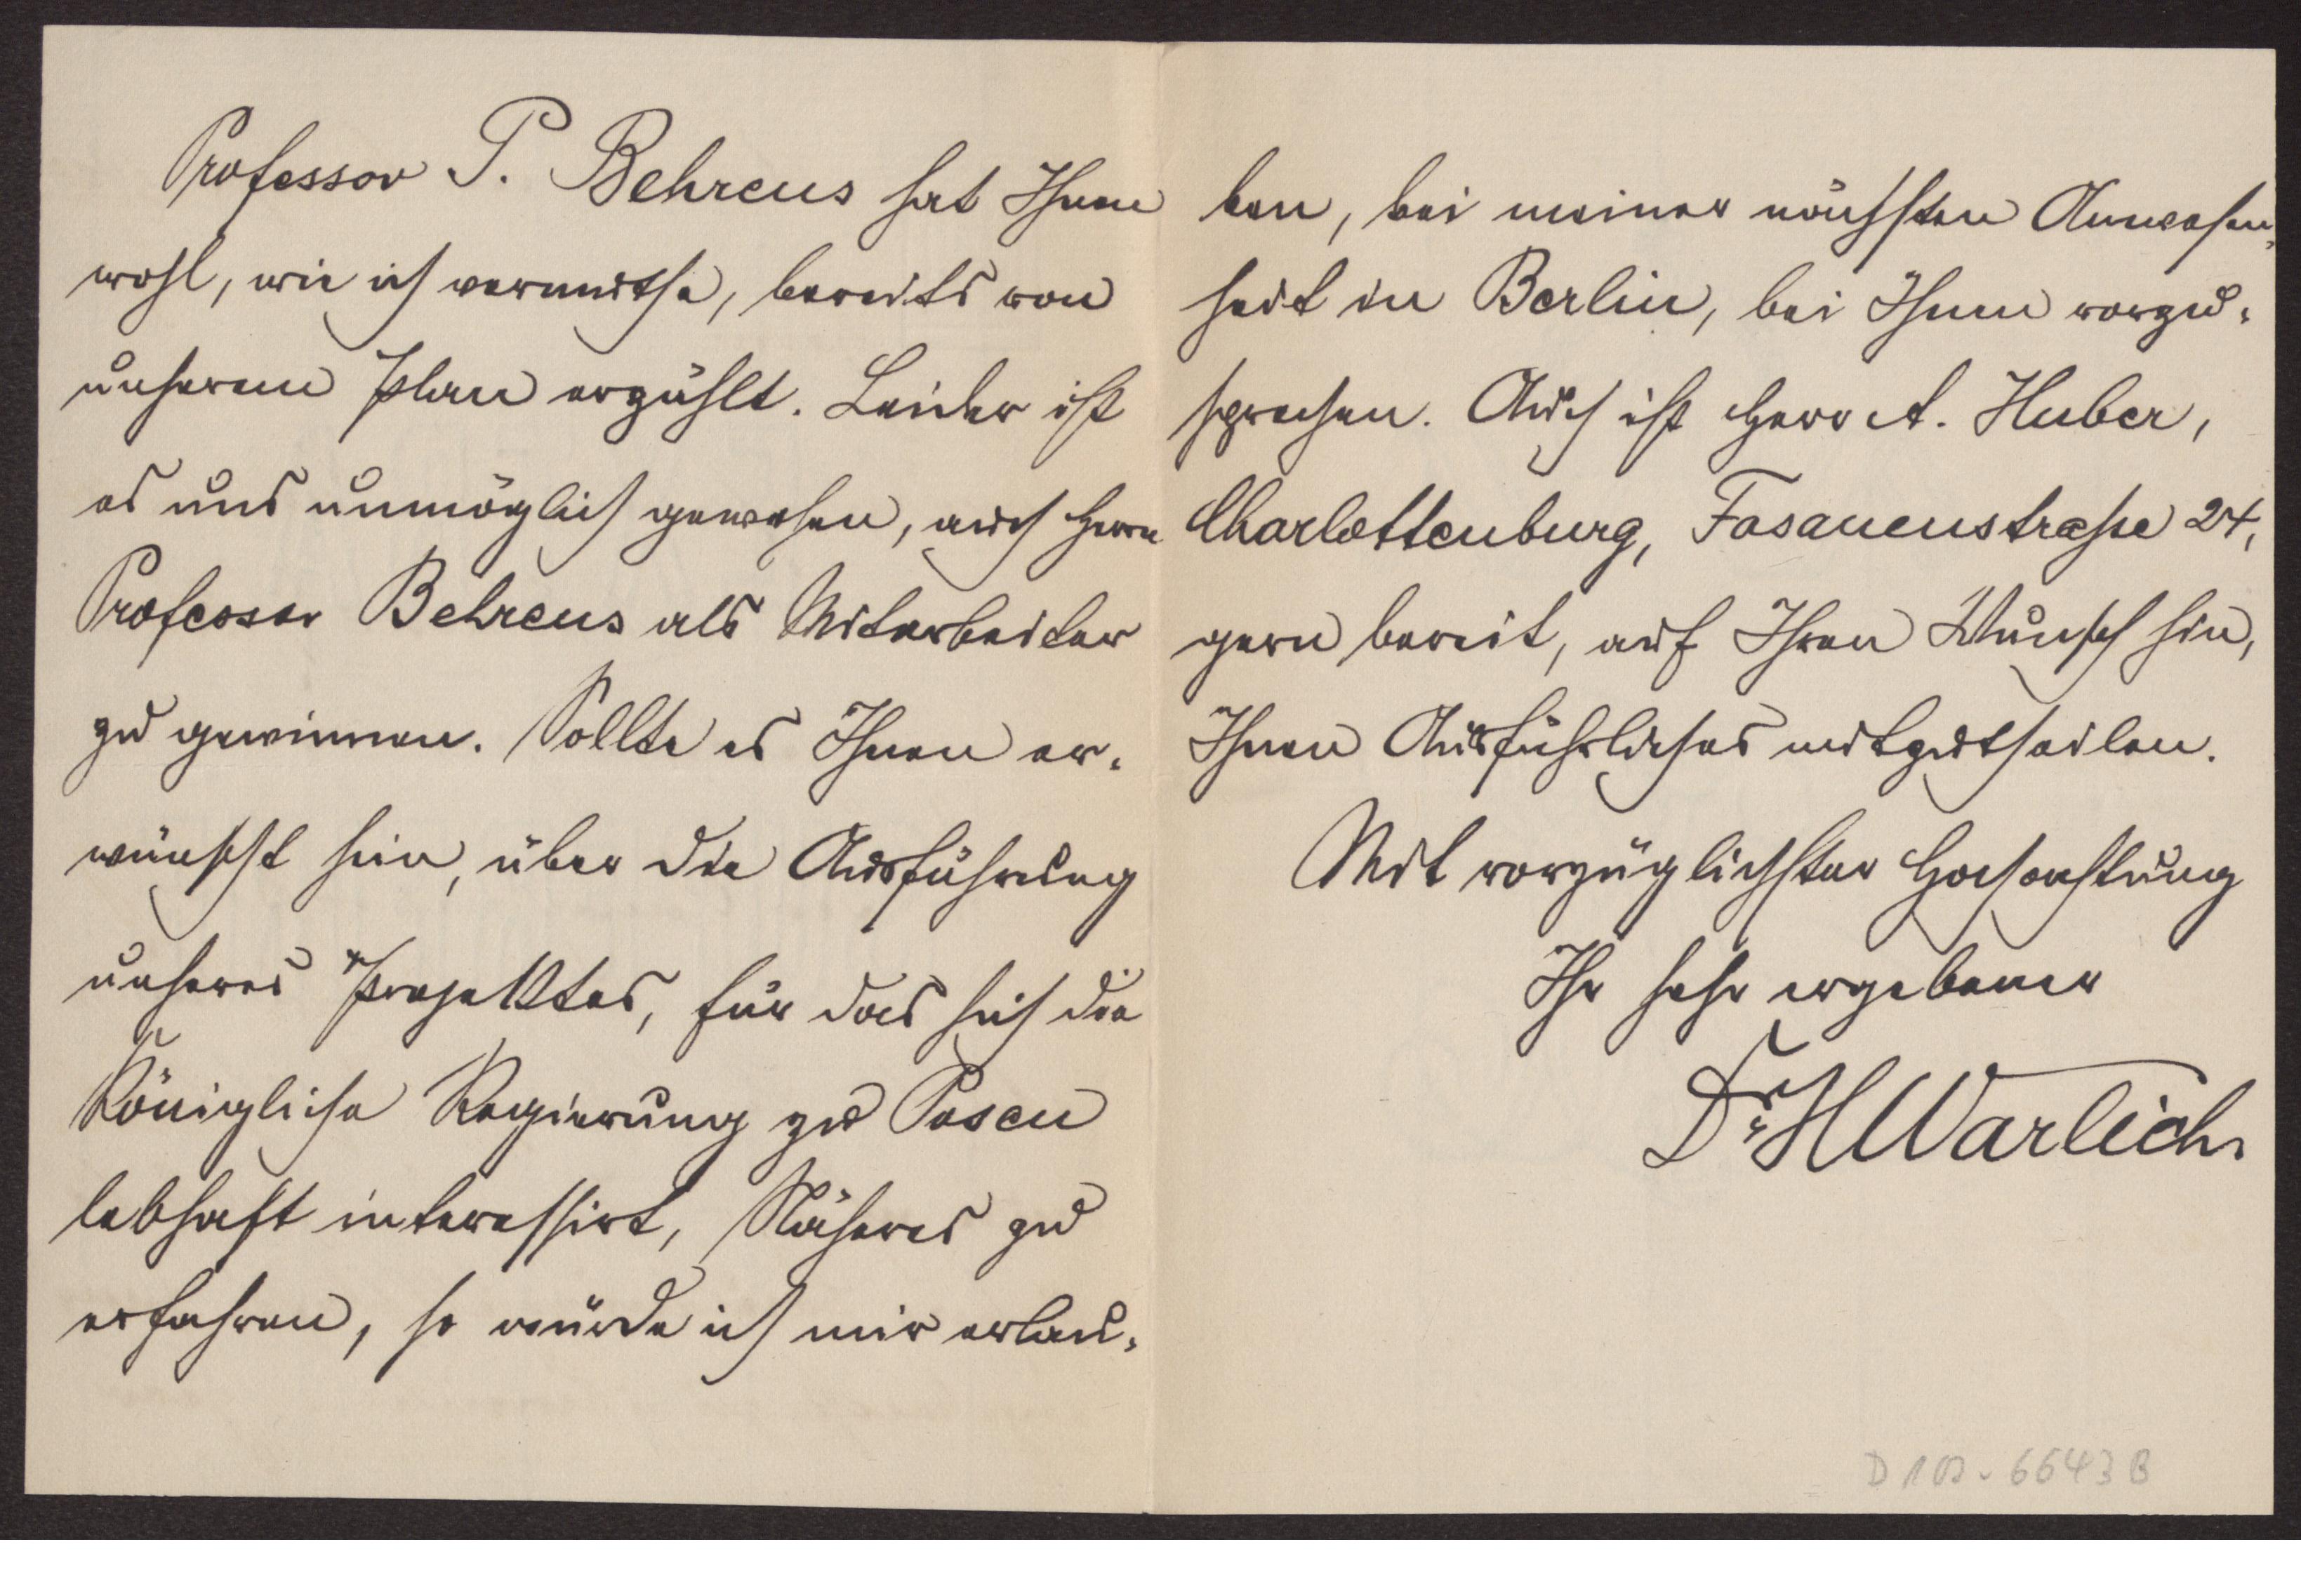 Professor P. Behrens hat Ihnen
wohl, wie ich vermuthe, bereits von
unserem Plan erzählt. Leider ist
es uns unmöglich gewesen, auch Herrn
Professor Behrens als Mitarbeiter
zu gewinnen. Sollte es Ihnen er-
wünscht sein, über die Ausführung
unseres Projektes, für das sich die
Königliche Regierung zu Posen
lebhaft interessirt, Näheres zu
erfahren, so würde ich mir erlau-
ben, bei meiner nächsten Anwesen-
heit in Berlin, bei Ihnen vorzu-
sprechen. Auch ist Herr A. Huber,
Charlottenburg, Fasanenstraße 24,
gern bereit, auf Ihren Wunsch hin,
Ihnen Ausführliches mitzutheilen.
Mit vorzüglichster Hochachtung
Ihr sehr ergebener
Dr. H Warlich.
D 103-6643 B